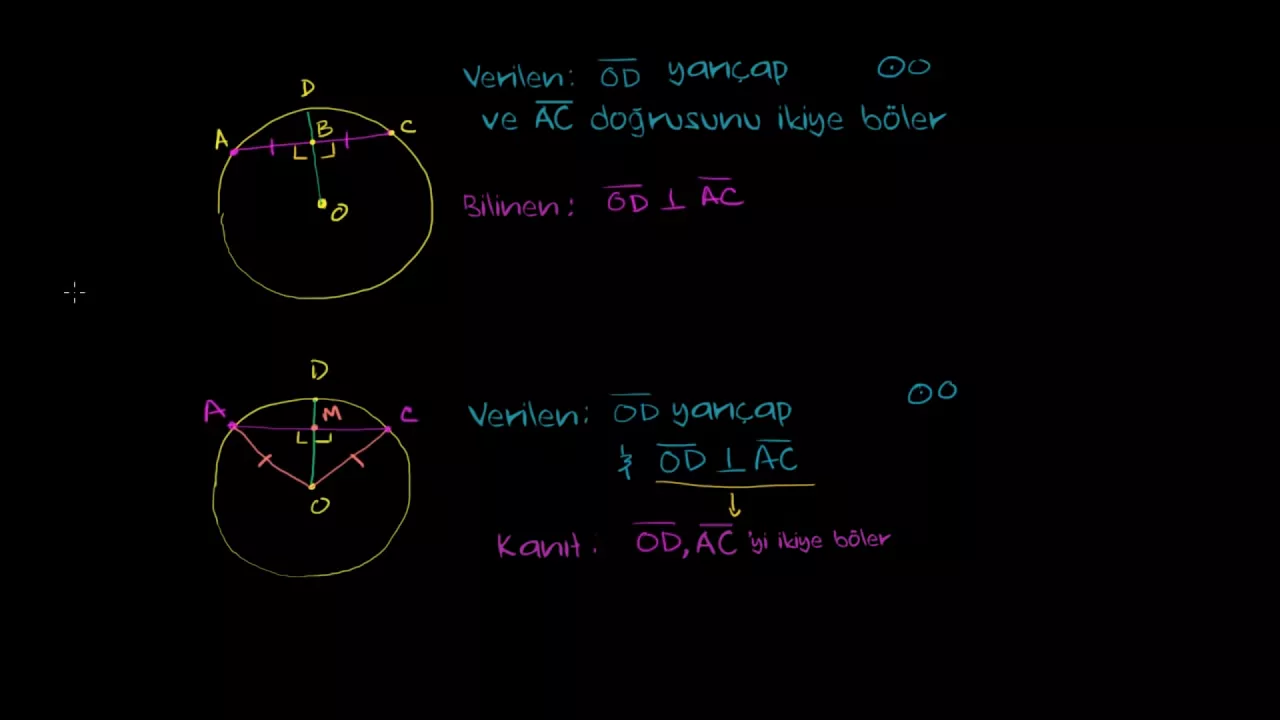 D
A
B
C
O
Verilen: OD yarıçap ⊙O
ve AC doğrusunu ikiye böler
Bilinen: OD ⊥ AC
D
A
M
C
O
Verilen: OD yarıçap ⊙O
& OD ⊥ AC
Kanıt: OD, AC'yi ikiye böler